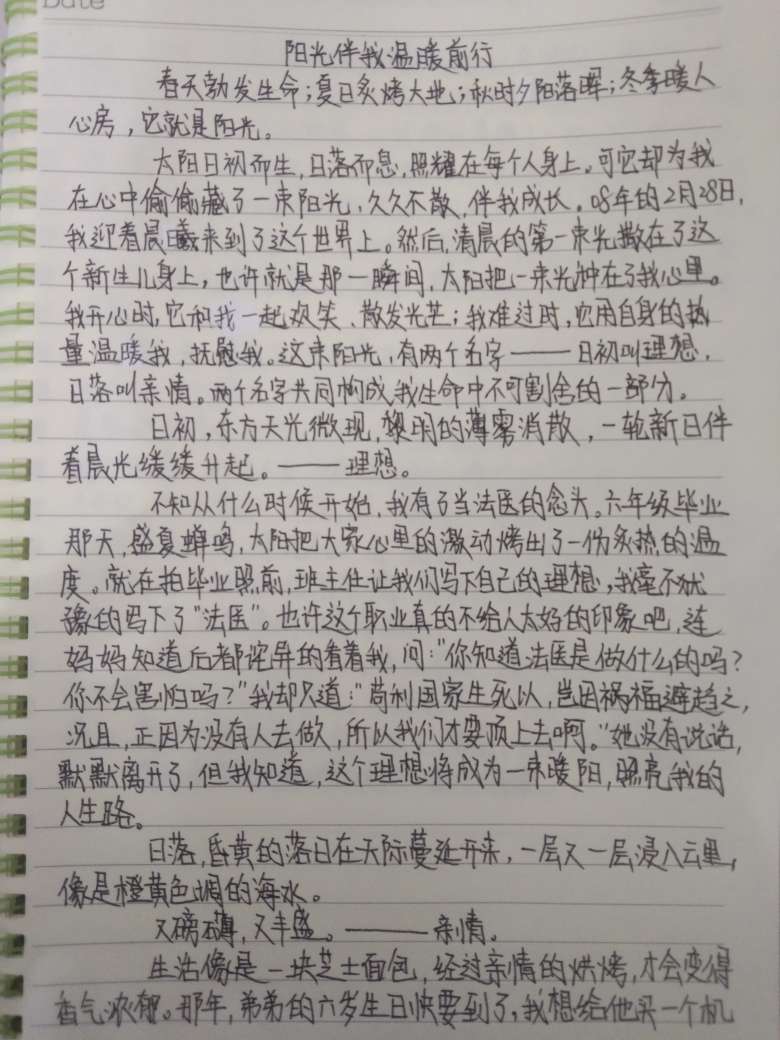 Date
阳光伴我温暖前行
春天勃发生命;夏日炙烤大地;秋时夕阳落晖;冬季暖人
心房,它就是阳光。
太阳日初而生,日落而息,照耀在每个人身上。可它却为我
在心中偷偷藏了一束阳光,久久不散,伴我成长。08年的2月28日,
我迎着晨曦来到了这个世界上。然后,清晨的第一束光撒在了这
个新生儿身上,也许就是那一瞬间,太阳把一束光种在了我心里。
我开心时,它和我一起欢笑、散发光芒;我难过时,它用自身的热
量温暖我,抚慰我。这束阳光,有两个名字——日初叫理想,
日落叫亲情。两个名字共同构成我生命中不可割舍的一部分。
日初,东方天光微现,黎明的薄雾消散,一轮新日伴
着晨光缓缓升起。——理想。
不知从什么时候开始,我有了当法医的念头。六年级毕业
那天,盛夏蝉鸣,太阳把大家心里的激动烤出了一份炙热的温
度。就在拍毕业照前,班主任让我们写下自己的理想,我毫不犹
豫的写下了“法医”。也许这个职业真的不给人太好的印象吧,连
妈妈知道后都诧异的看着我,问:“你知道法医是做什么的吗?
你不会害怕吗?”我却只道:“苟利国家生死以,岂因祸福避趋之,
况且,正因为没有人去做,所以我们才要顶上去啊。”她没有说话,
默默离开了,但我知道,这个理想将成为一束暖阳,照亮我的
人生路。
日落,昏黄的落日在天际蔓延开来,一层又一层浸入云里,
像是橙黄色调的海水。
又磅礴,又丰盛。——亲情。
生活像是一块芝士面包,经过亲情的烘烤,才会变得
香气浓郁。那年,弟弟的六岁生日快要到了,我想给他买一个机